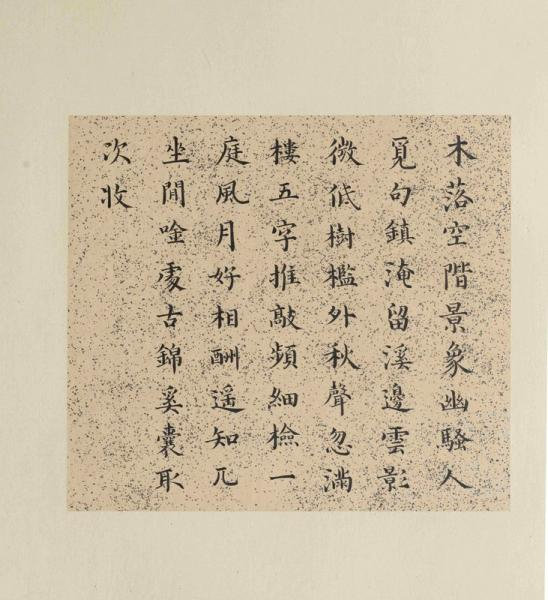 木落空階景象幽騷人
覓句鎮淹留溪邊雲影
微低樹檻外秋聲忽滿
樓五字推敲頻細檢一
庭風月好相酬遥知兀
坐閒唫處古錦奚囊取
次收